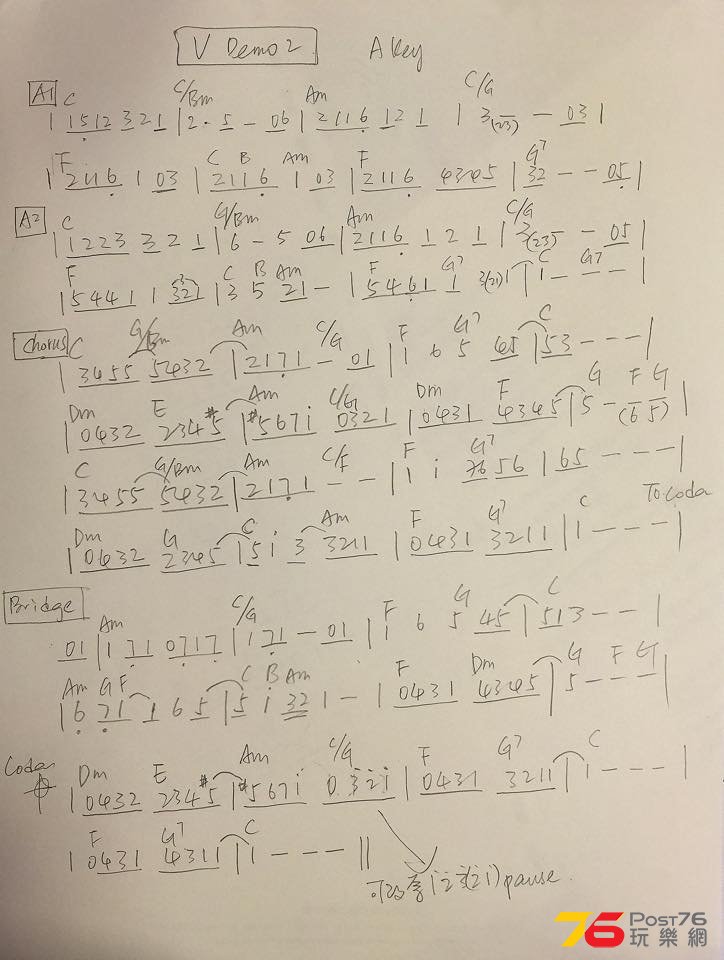 V Demo 2 A Key
A1 C C/Bm Am C/G
| 1512 321 | 2· 5 - 06 | 2116 121 | 3(23) - 03 |
F C B Am F G7
| 2116 1 03 | 2116 1 03 | 2116 4345 | 32 - - 05 |
A2 C G/Bm Am C/G
| 1223 321 | 6 - 5 06 | 2116 121 | 3(23) - 05 |
F C B Am F G7 C G7
| 5441 1 (32) | 3 5 21 - | 5461 1 3(21) | 1 - - - |
Chorus C G/Bm Am C/G F G7 C
| 3455 5432 | 2171 - 01 | 1 6 5 45 | 53 - - - |
Dm E Am C/G Dm F G F G
| 0432 234#5 | #567i 0321 | 0431 4345 | 5 - (65) |
C G/Bm Am C/F F G7
| 3455 5432 | 2171 - - | 1 i 76 56 | 65 - - - |
Dm G C Am F G7 C To Coda
| 0432 2345 | 5 i 3 3211 | 0431 3211 | 1 - - - |
Bridge
Am C/G F G C
01 | 171 0717 | 171 - 01 | 1 6 5 45 | 513 - - |
Am G F C B Am F Dm G F G
| 671 165 | 5 i 32 1 - | 0431 4345 | 5 - - - |
Coda Dm E Am C/G F G7 C
| 0432 234#5 | #567i 03̇2̇i | 0431 3211 | 1 - - - |
F G7 C
| 0431 4311 | 1 - - - ||
i 2̇ 3̇(2̇ i) pause.
76 Post76
玩樂網